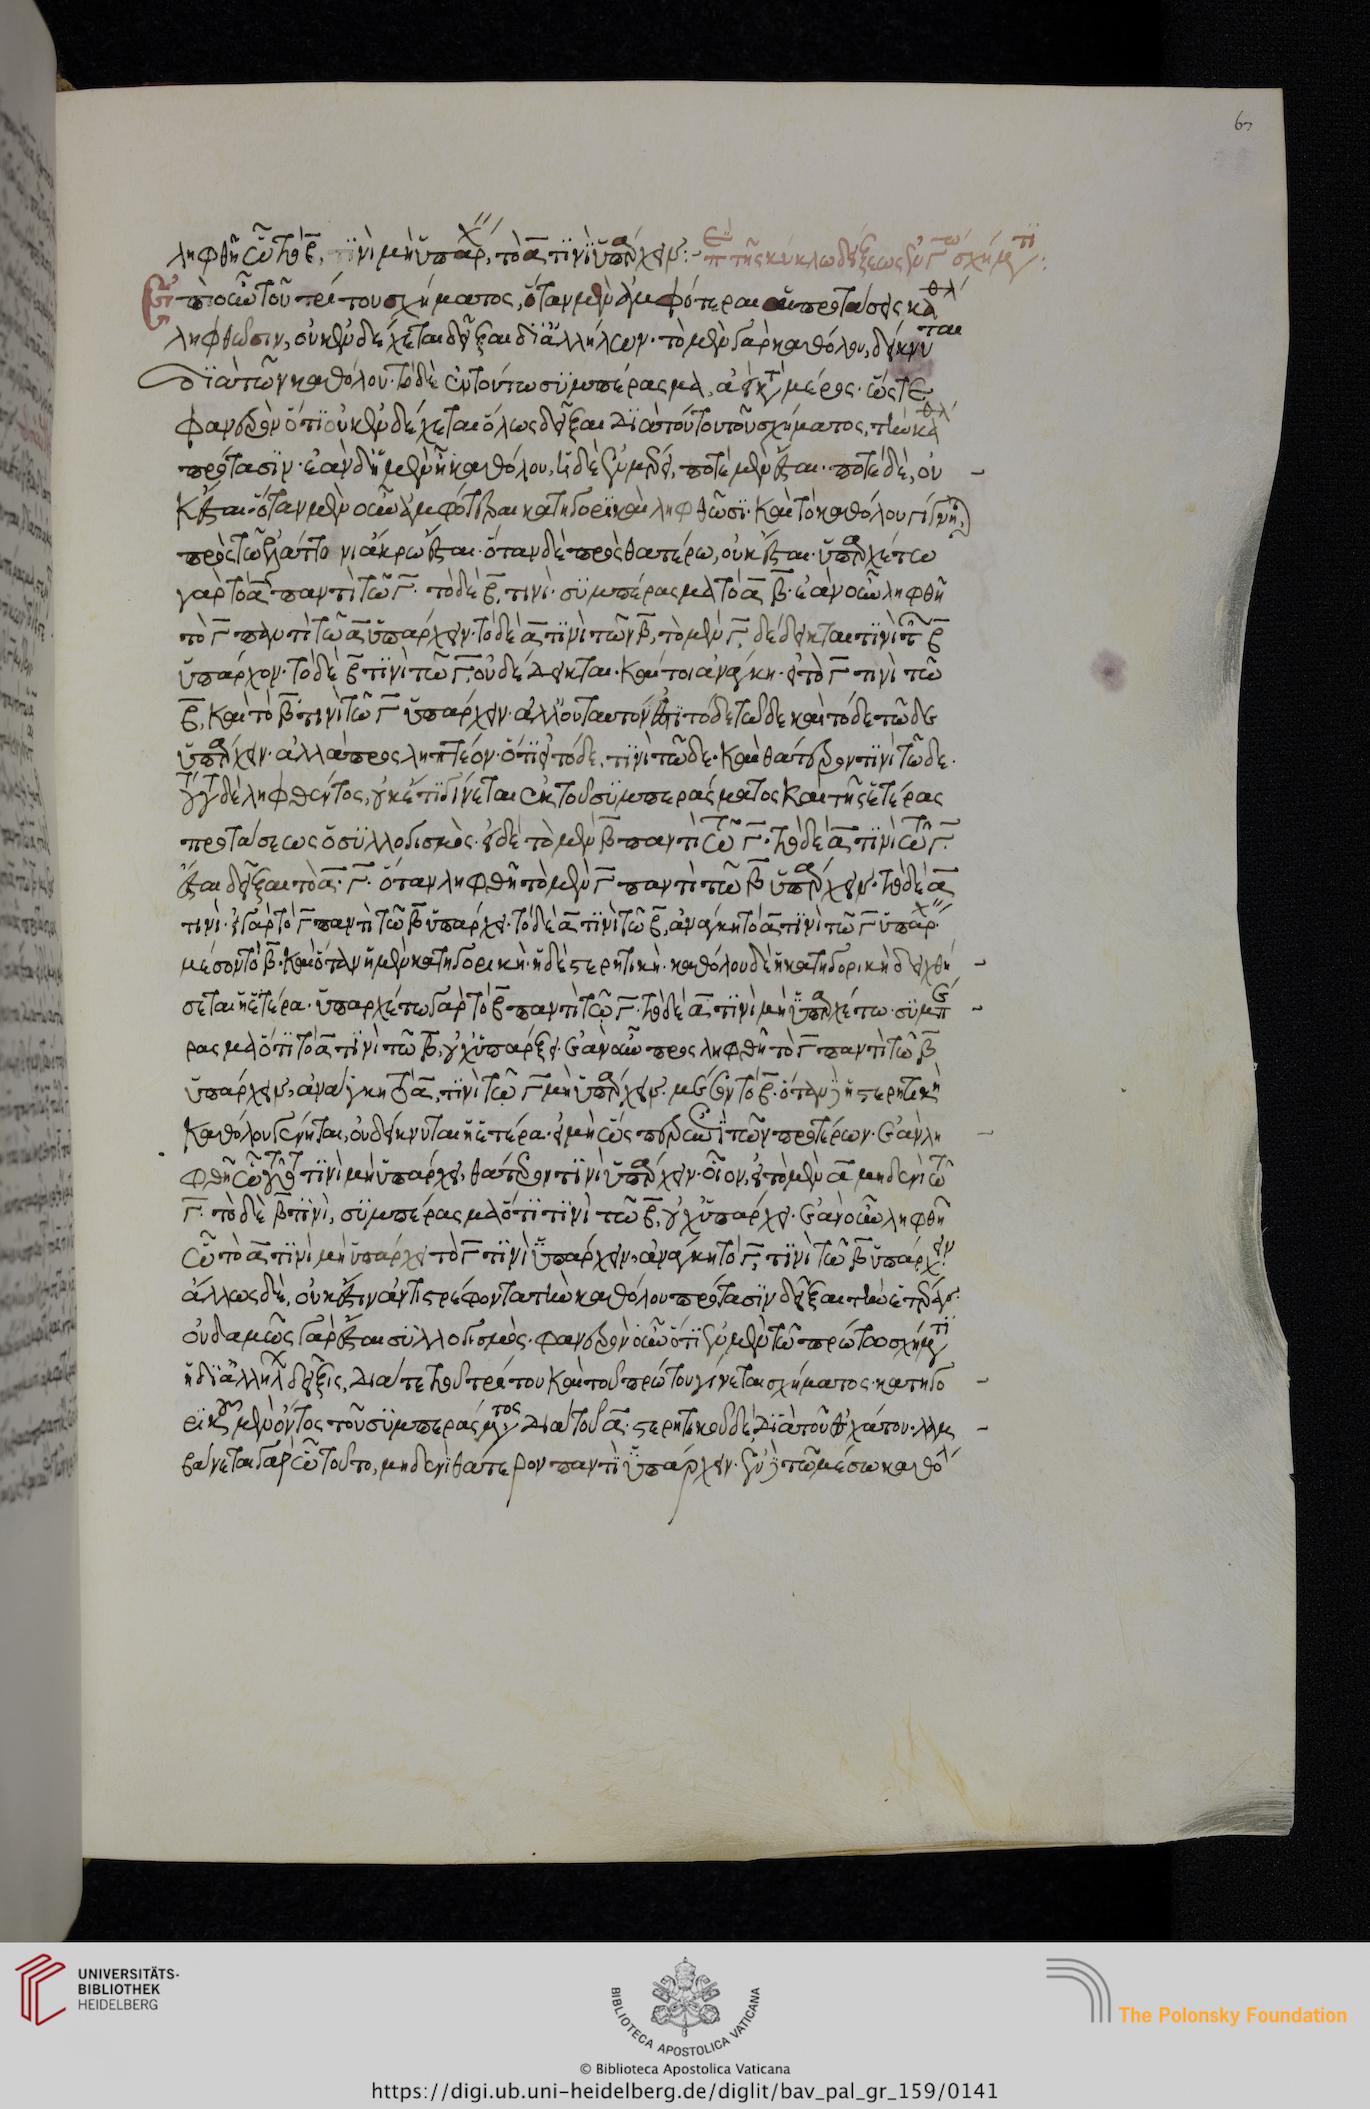 67
ληφθῆ ὧ τὸ β, τινὶ μὴ ὑπάρχ, τὸ α τινὶ ὑπάρχειν: περὶ τῆς κύκλω δείξεως ἐν γ σχήματι:
Ἐπὶ δὲ τοῦ τρίτου σχήματος, ὅταν μὲν ἀμφότεραι αἱ προτάσεις καθλ
ληφθῶσιν, οὐκ ἐνδέχεται δεῖξαι δι ἀλλήλων· τὸ μὲν γὰρ καθόλου, δείκνυται
διὰ τῶν καθόλου· τὸ δὲ ἐν τούτω συμπέρασμα, ἀεὶ κτ μέρος· ὥστε
φανερὸν ὅτι οὐκ ἐνδέχεται ὅλως δεῖξαι διὰ τούτου τοῦ σχήματος, τὴν καθλ
πρότασιν· ἐὰν δ ἡ μὲν ἦ καθόλου, ἡ δὲ ἐν μέρει, ποτὲ μὲν ἔσται· ποτὲ δὲ, οὐ
κ ἔσται· ὅταν μὲν οὖν ἀμφότεραι κατηγορικαὶ ληφθῶσι· καὶ τὸ καθόλου γένηται
πρὸς τῶ ἐλάττονι ἄκρω ἔσται· ὅταν δὲ πρὸς θατέρω, οὐκ ἔσται· ὑπαρχέτω
γὰρ τὸ α παντὶ τῶ γ· τὸ δὲ β, τινί· συμπέρασμα τὸ α β· ἐὰν οὖν ληφθῆ
τὸ γ παντὶ τῶ α ὑπάρχειν· τὸ δὲ α τινὶ τῶν β, τὸ μὲν γ, δέδεικται τινὶ τῶ β
ὑπάρχον· τὸ δὲ β τινὶ τῶ γ, οὐ δέδεικται· καίτοι ἀνάγκη· εἰ τὸ γ τινὶ τῶ
β, καὶ τὸ β τινὶ τῶ γ ὑπάρχειν· ἀλλ οὐ ταυτόν ἐστι τόδε τῶδε καὶ τόδε τῶδε
ὑπάρχειν· ἀλλὰ προσληπτέον· ὅτι εἰ τόδε, τινὶ τῶδε· καὶ θάτερον τινὶ τῶδε·
τούτου δὲ ληφθέντος, οὐκέτι γίνεται ἐκ τοῦ συμπεράσματος καὶ τῆς ἑτέρας
προτάσεως ὁ συλλογισμὸς· εἰ δὲ τὸ μὲν β παντὶ τῶ γ· τὸ δὲ α τινὶ τῶ γ·
ἔσται δεῖξαι τὸ α γ· ὅταν ληφθῆ τὸ μὲν γ παντὶ τῶ β ὑπάρχειν· τὸ δὲ α
τινί· εἰ γὰρ τὸ γ παντὶ τῶ β ὑπάρχει· τὸ δὲ α τινὶ τῶ β, ἀνάγκη τὸ α τινὶ τῶ γ ὑπάρχ
μέσον τὸ β· καὶ ὅταν ἡ μὲν κατηγορικὴ· ἡ δὲ στερητικὴ· καθόλου δὲ ἡ κατηγορικὴ δειχθή
σεται ἡ ἑτέρα· ὑπαρχέτω γὰρ τὸ β παντὶ τῶ γ· τὸ δὲ α τινὶ μὴ ὑπαρχέτω· συμπε
ρασμα ὅτι τὸ α τινὶ τῶ β, οὐχ ὑπάρξει· ἐὰν οὖν προσληφθῆ τὸ γ παντὶ τῶ β
ὑπάρχειν, ἀνάγκη τὸ α, τινὶ τῶ γ μὴ ὑπάρχειν· μέσον τὸ β· ὅταν δὲ ἡ στερητικὴ
καθόλου γένηται, οὐ δείκνυται ἡ ἑτέρα· εἰ μὴ ὡς περ ἐπὶ τῶν προτέρων· ἐὰν λη
φθῆ ὧ τοῦτο τινὶ μὴ ὑπάρχει, θάτερον τινὶ ὑπάρχειν· οἷον, εἰ τὸ μὲν α μηδενὶ τῶ
γ· τὸ δὲ β τινί, συμπέρασμα ὅτι τινὶ τῶ β, οὐχ ὑπάρχει· ἐὰν οὖν ληφθῆ
ὧ τὸ α τινὶ μὴ ὑπάρχει τὸ γ τινὶ ὑπάρχειν, ἀνάγκη τὸ γ, τινὶ τῶ β ὑπάρχειν·
ἄλλως δὲ, οὐκ ἔστιν ἀντιστρέφοντα τὴν καθόλου πρότασιν δεῖξαι τὴν ἑτέραν·
οὐδαμῶς γὰρ ἔσται συλλογισμός· φανερὸν οὖν ὅτι ἐν μὲν τῶ πρώτω σχήματι
ἡ δι ἀλλήλων δεῖξις, διά τε τοῦ τρίτου καὶ τοῦ πρώτου γίνεται σχήματος· κατηγο
ρικοῦ μὲν ὄντος τοῦ συμπεράσματος διὰ τοῦ α· στερητικοῦ δὲ, διὰ τοῦ ἐσχάτου· λαμ
βάνεται γὰρ ὧ τοῦτο, μηδενὶ θάτερον παντὶ ὑπάρχειν· ἐν δὲ τῶ μέσω καθό
UNIVERSITÄTS-
BIBLIOTHEK
HEIDELBERG
BIBLIOTECA APOSTOLICA VATICANA
The Polonsky Foundation
© Biblioteca Apostolica Vaticana
https://digi.ub.uni-heidelberg.de/diglit/bav_pal_gr_159/0141